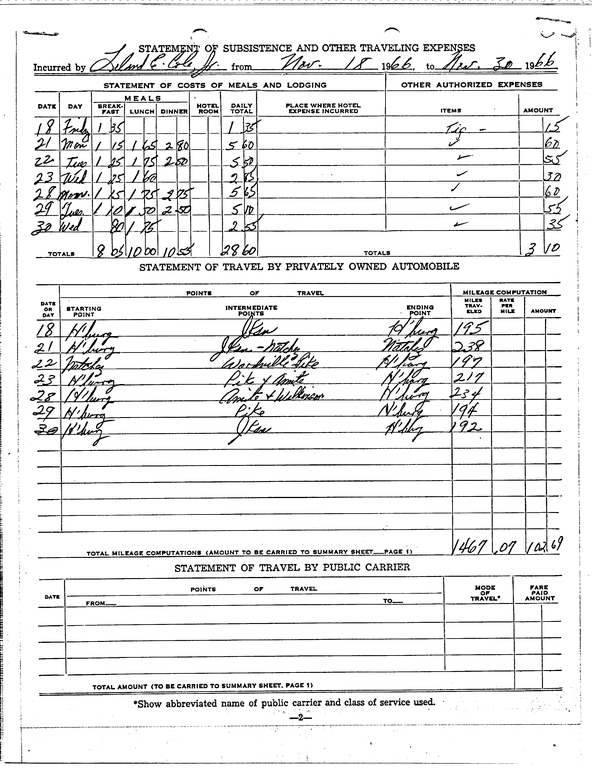 STATEMENT OF SUBSISTENCE AND OTHER TRAVELING EXPENSES
Incurred by Leland E. Cole, Jr. from Nov. 18 1966, to Nov. 30 1966
STATEMENT OF COSTS OF MEALS AND LODGING OTHER AUTHORIZED EXPENSES
MEALS
DATE DAY BREAK-FAST LUNCH DINNER HOTEL ROOM DAILY TOTAL PLACE WHERE HOTEL EXPENSE INCURRED ITEMS AMOUNT
18 Friday 1 35 1 35 Tip - 15
21 Mon 1 15 1 65 2 80 5 60 ✓ 60
22 Tues 1 25 1 75 2 50 5 50 ✓ 55
23 Wed 1 25 1 60 2 85 ✓ 30
28 Mon. 1 15 1 75 2 75 5 65 ✓ 60
29 Tues. 1 10 1 50 2 50 5 10 ✓ 55
30 Wed 80 1 75 2 55 ✓ 35
TOTALS 8 05 10 00 10 55 28 60 TOTALS 3 10
STATEMENT OF TRAVEL BY PRIVATELY OWNED AUTOMOBILE
POINTS OF TRAVEL MILEAGE COMPUTATION
DATE OR DAY STARTING POINT INTERMEDIATE POINTS ENDING POINT MILES TRAV-ELED RATE PER MILE AMOUNT
18 H'burg H'burg 195
21 H'burg - Natchez Natchez 238
22 Natchez Pike H'burg 197
23 H'burg Pike & Amite H'burg 217
28 H'burg Amite & Wilkinson H'burg 234
29 H'burg Pike H'burg 194
30 H'burg H'burg 192
TOTAL MILEAGE COMPUTATIONS (AMOUNT TO BE CARRIED TO SUMMARY SHEET__PAGE 1) 1467 .07 102.69
STATEMENT OF TRAVEL BY PUBLIC CARRIER
DATE POINTS OF TRAVEL MODE OF TRAVEL* FARE PAID AMOUNT
FROM__ TO__
TOTAL AMOUNT (TO BE CARRIED TO SUMMARY SHEET, PAGE 1)
*Show abbreviated name of public carrier and class of service used.
—2—